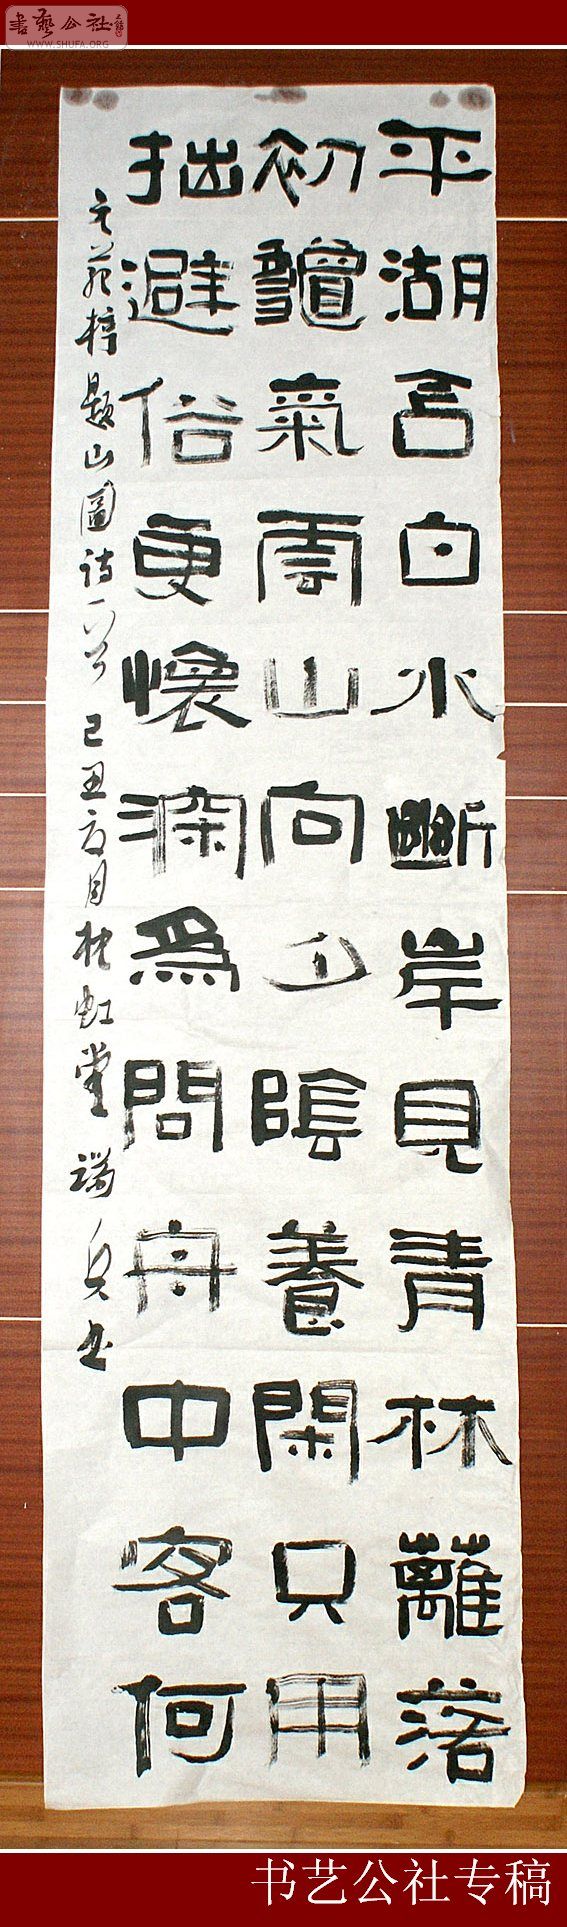 書藝公社
WWW.SHUFA.ORG
平湖含白水斷岸見青林蘺落
初氣雲山向夕陰養閑只用
拙避俗更懷深為問舟中客何
元范梈題山圖詩一首己丑月虹堂瑞兵書
书艺公社专稿